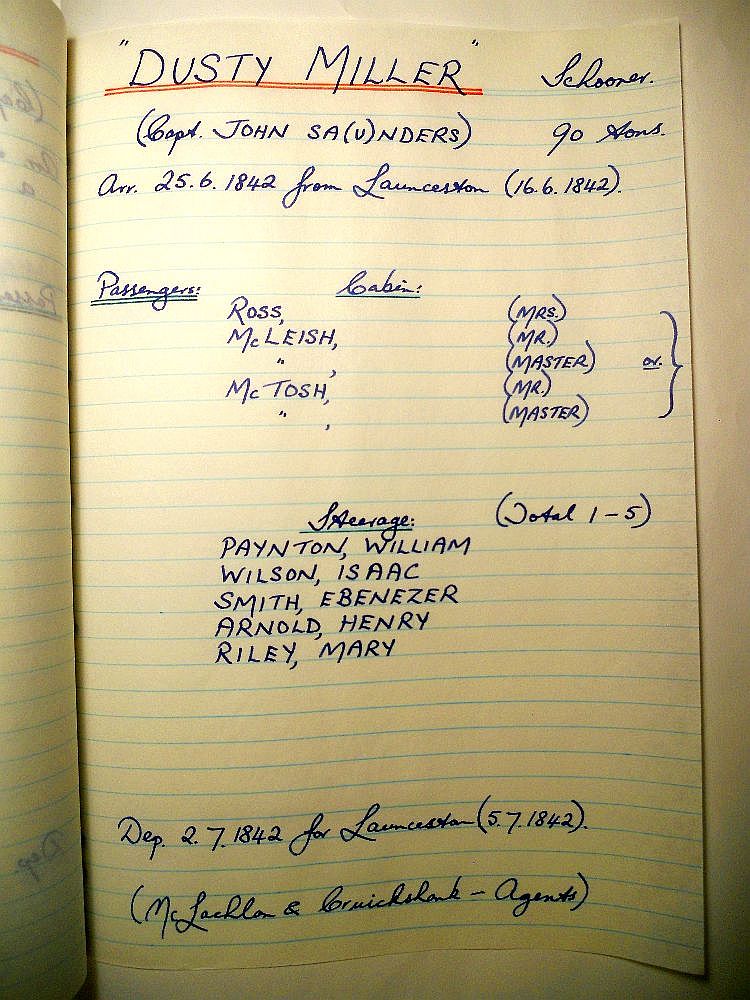 "DUSTY MILLER" Schooner.
(Capt. JOHN SA(U)NDERS) 90 tons.
Arr. 25.6.1842 from Launceston (16.6.1842).
Passengers: Cabin:
ROSS, (MRS.)
McLEISH, (MR.)
" , (MASTER) or.
McTOSH, (MR.)
" , (MASTER)
Steerage: (Total 1-5)
PAYNTON, WILLIAM
WILSON, ISAAC
SMITH, EBENEZER
ARNOLD, HENRY
RILEY, MARY
Dep. 2.7.1842 for Launceston (5.7.1842).
(McLachlan & Cruickshank - Agents)